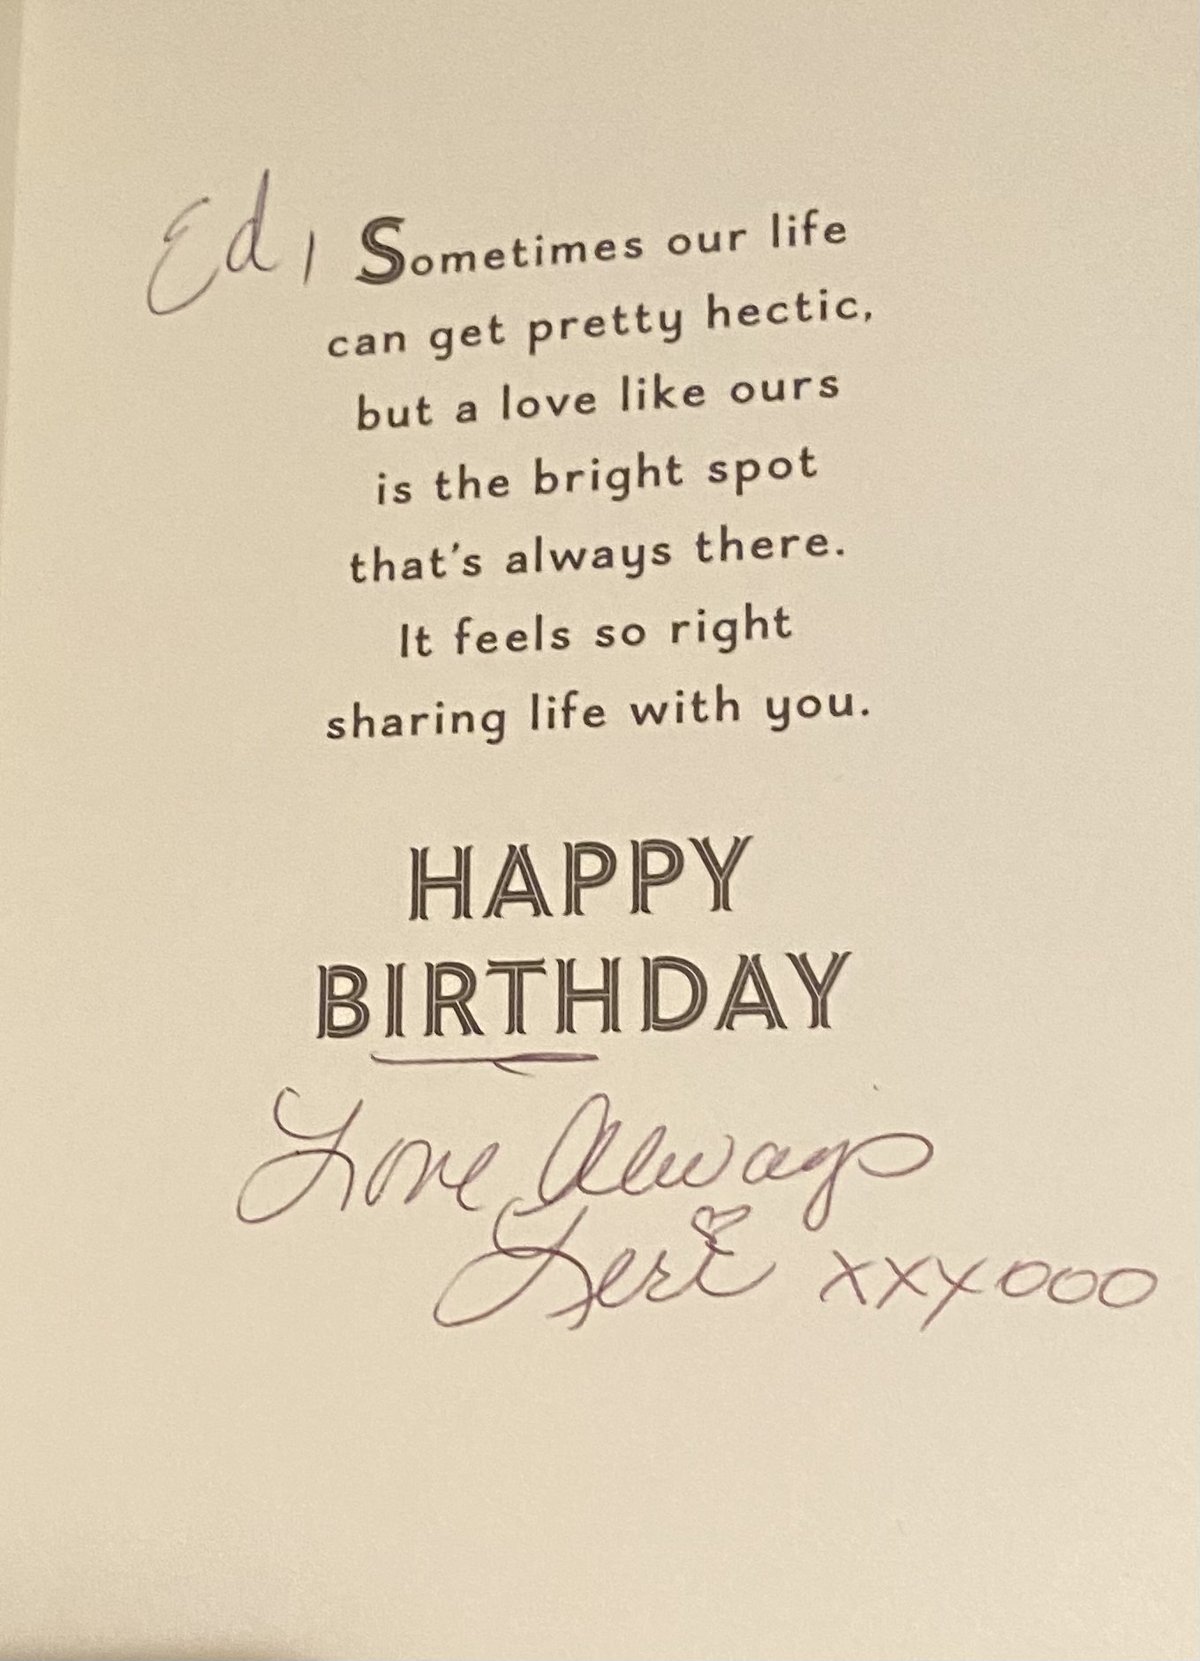 Ed, Sometimes our life
can get pretty hectic,
but a love like ours
is the bright spot
that's always there.
It feels so right
sharing life with you.
HAPPY
BIRTHDAY
Love Always
Teri xxxooo